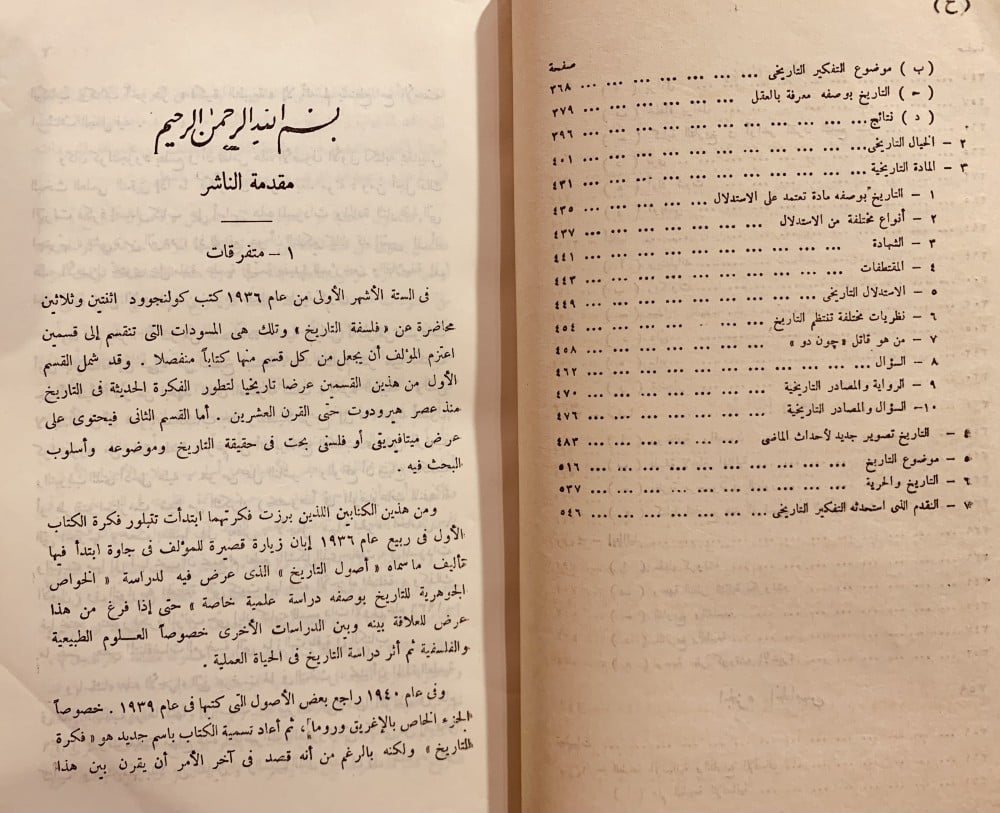 (ح)
صفحة
(ب) موضوع التفكير التاريخى ... ... ... ... ... ... ... ٣٦٨
(ح) التاريخ بوصفه معرفة بالعقل ... ... ... ... ... ... ٣٧٩
(د) نتائج ... ... ... ... ... ... ... ... ... ... ٣٩٦
٢ – الخيال التاريخى ... ... ... ... ... ... ... ... ... ٤٠١
٣ – المادة التاريخية ... ... ... ... ... ... ... ... ... ٤٣١
١ – التاريخ بوصفه مادة تعتمد على الاستدلال ... ... ... ... ٤٣٥
٢ – أنواع مختلفة من الاستدلال ... ... ... ... ... ... ٤٣٧
٣ – الشهادة ... ... ... ... ... ... ... ... ... ٤٤١
٤ – المقتطفات ... ... ... ... ... ... ... ... ... ٤٤٣
٥ – الاستدلال التاريخى ... ... ... ... ... ... ... ... ٤٤٩
٦ – نظريات مختلفة تنتظم التاريخ ... ... ... ... ... ... ٤٥٤
٧ – من هو قاتل «چون دو» ... ... ... ... ... ... ... ٤٥٨
٨ – السؤال ... ... ... ... ... ... ... ... ... ... ٤٦٢
٩ – الرواية والمصادر التاريخية ... ... ... ... ... ... ... ٤٧٠
١٠– السؤال والمصادر التاريخية ... ... ... ... ... ... ... ٤٧٦
٤ – التاريخ تصوير جديد لأحداث الماضى ... ... ... ... ... ... ٤٨٣
٥ – موضوع التاريخ ... ... ... ... ... ... ... ... ... ٥١٦
٦ – التاريخ والحرية ... ... ... ... ... ... ... ... ... ٥٣٧
٧ – التقدم الذى استحدثه التفكير التاريخى ... ... ... ... ... ... ٥٤٦
بسم الله الرحمن الرحيم
مقدمة الناشر
١ – متفرقات
فى الستة الأشهر الأولى من عام ١٩٣٦ كتب كولنجوود اثنتين وثلاثين
محاضرة عن «فلسفة التاريخ» وتلك هى المسودات التى تنقسم إلى قسمين
اعتزم المؤلف أن يجعل من كل قسم منها كتاباً منفصلا . وقد شمل القسم
الأول من هذين القسمين عرضا تاريخيا لتطور الفكرة الحديثة فى التاريخ
منذ عصر هيرودوت حتى القرن العشرين . أما القسم الثانى فيحتوى على
عرض ميتافيزيقى أو فلسفى بحت فى حقيقة التاريخ وموضوعه وأسلوب
البحث فيه .
ومن هذين الكتابين اللذين برزت فكرتهما ابتدأت تتبلور فكرة الكتاب
الأول فى ربيع عام ١٩٣٦ إبان زيارة قصيرة للمؤلف فى جاوة ابتدأ فيها
تأليف ما سماه «أصول التاريخ» الذى عرض فيه لدراسة «الخواص
الجوهرية للتاريخ بوصفه دراسة علمية خاصة» حتى إذا فرغ من هذا
عرض للعلاقة بينه وبين الدراسات الأخرى خصوصاً العلوم الطبيعية
والفلسفية ثم أثر دراسة التاريخ فى الحياة العملية .
وفى عام ١٩٤٠ راجع بعض الأصول التى كتبها فى عام ١٩٣٩ . خصوصاً
الجزء الخاص بالإغريق وروما، ثم أعاد تسمية الكتاب باسم جديد هو «فكرة
التاريخ» ولكنه بالرغم من أنه قصد فى آخر الأمر أن يقرن بين هذا